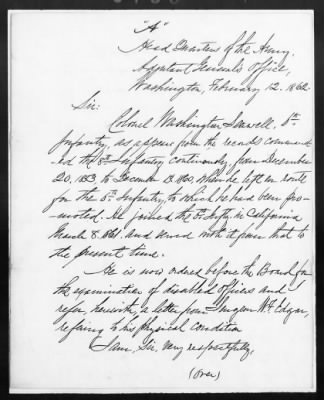 "A"
Head Quarters of the Army.
Adjutant General's Office,
Washington, February 12. 1862.
Sir:
Colonel Washington Seawell, 8th
Infantry, as appears from the records command-
ed the 8th Infantry continuously, from December
20, 1853 to December 13. 1860, when he left en route
for the 6th Infantry, to which he had been pro-
moted. He joined the 6th Infty in California
March 8. 1861. and served with it from that to
the present time.
He is now ordered before the Board for
the examination of disabled officers and I
refer, herewith, a letter from Surgeon Wm. F. Edgar,
refering to his physical condition
I am, Sir, Very respectfully,
(over)